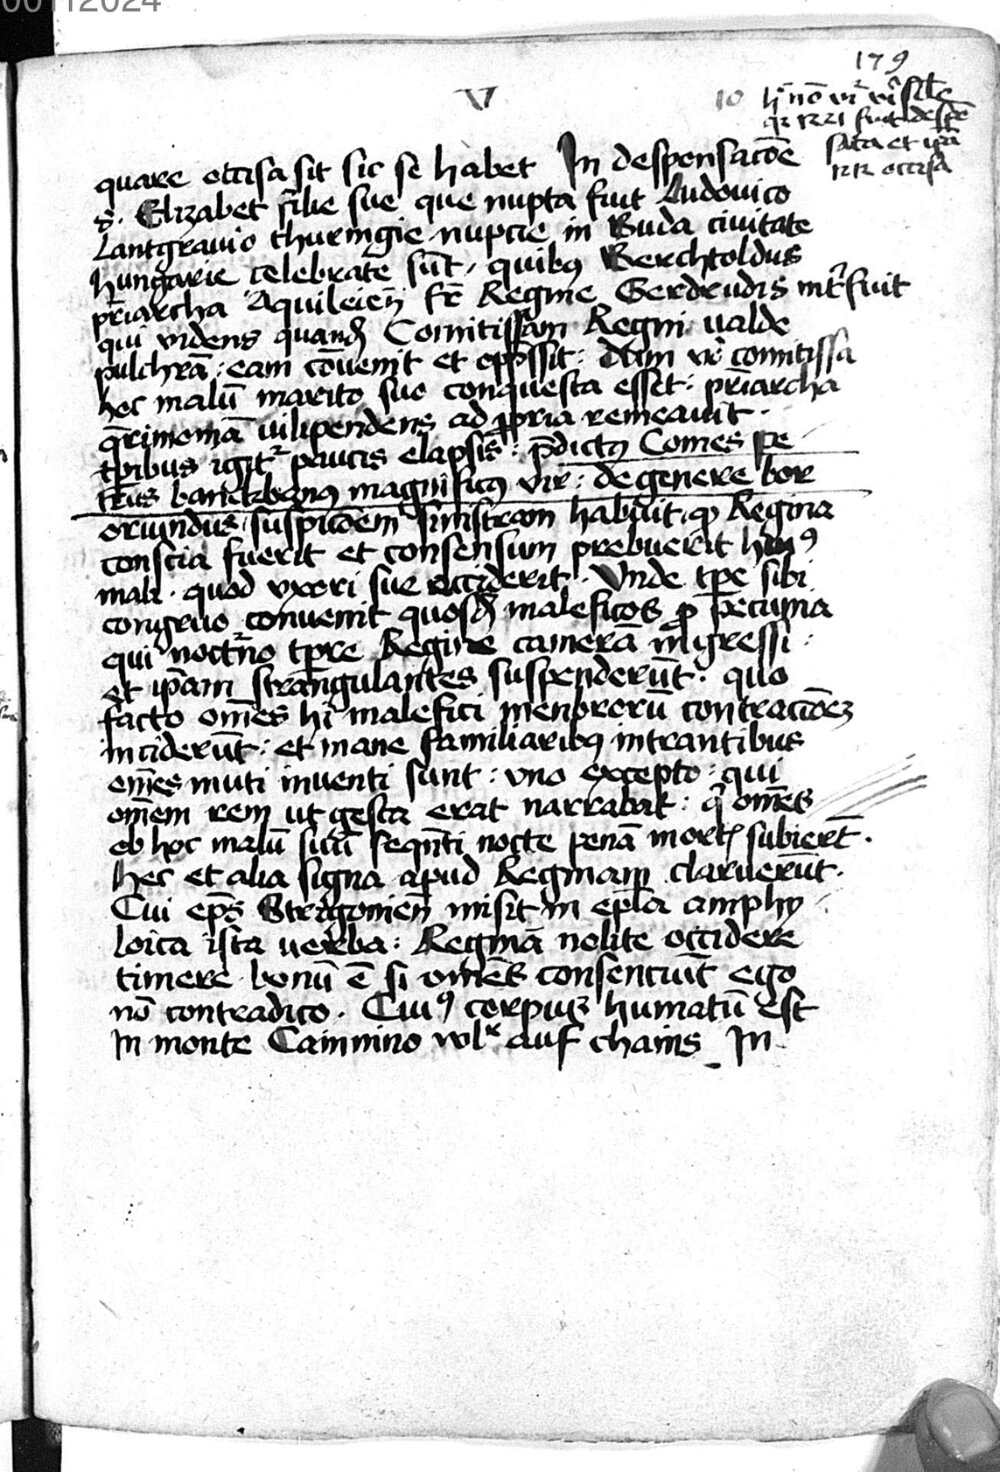 00112024
179
V
10
hoc nō vr̄ vi
qr 1221 fuit despō
sata et ip̄a
1212 occisa
quare occisa sit sic se habet In desponsacōe
s. Elizabet filie sue que nupta fuit Ludovico
Lantgravio thuringie nupcie in Buda civitate
hungarie celebrate sūt, quibꝰ Berchtoldus
pr̄iarcha Aquileien̄ fr̄ Regine Gerdrudis int̄fuit
qui videns quand̄ Comitissam Regni valde
pulchrā : eam cōvenit et opp̄ssit : dum v̄o comitissa
hoc malū marito suo conquesta esset : pr̄iarcha
q̄rimoniā vilipendens ad ꝓpria remeavit .
tp̄ibus igit̄ paucis elapsis : p̄dictꝰ Comes pe
trus magnificꝰ vir : de genere bor
oriundus suspicōem sinistram habuit, ꝙ Regina
conscia fuerit et consensum prebuerit huiꝰ
mali . quod uxori sue acciderit . Unde tp̄e sibi
congruo convenit quosd̄ maleficos ꝓ pecunia
qui noct̄no tp̄re Regine camerā ingressi :
et ip̄am strangulantes suspenderūt . quo
facto om̄es hi malefici menbrorū contraciōeʒ
inciderūt : et mane familiaribꝰ intrantibus
om̄es muti inventi sunt : uno excepto : qui
om̄em rem ut gesta erat narrabat : q̄ om̄es
ob hoc malū suū seqn̄ti nocte penā mort̄ subierūt .
hec et alia signa apud Reginam claruerūt .
Cui ep̄s Strigonien̄ misit in ep̄la amphy
loica ista verba : Reginā nolite occidere
timere bonū ē si om̄es consenciūt ego
nō contradico . Cuiꝰ corpus humatū est
in monte Cammino auf chams In